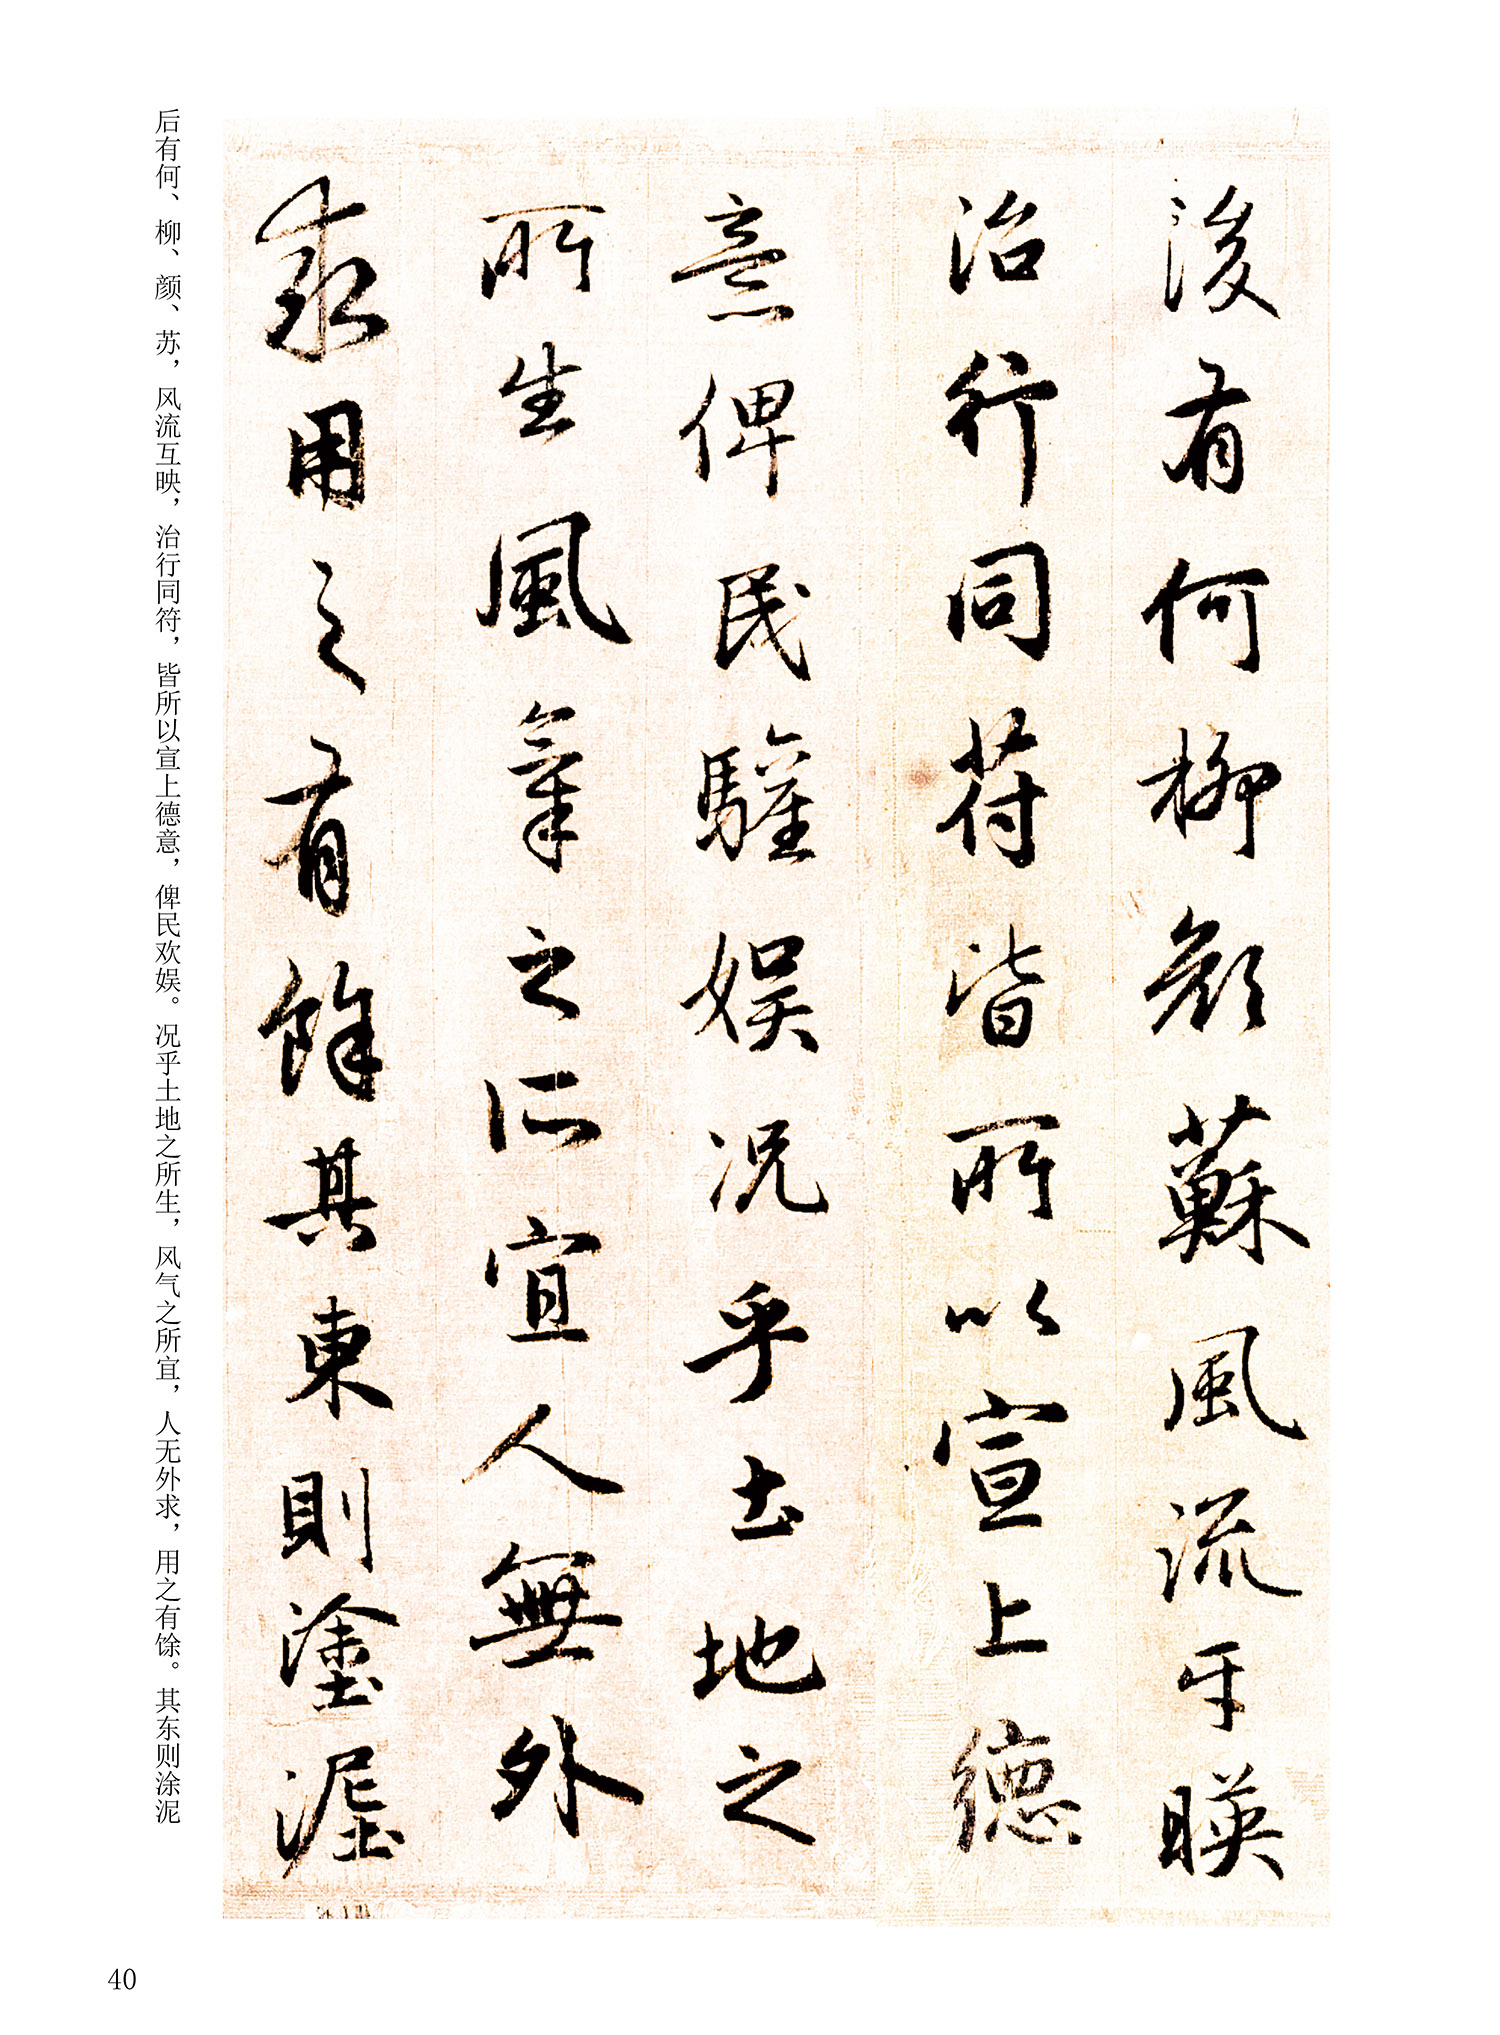 後有何柳顏蘇風流㸦暎
治行同苻皆所以宣上德
意俾民驩娛况乎土地之
所生風氣之所宜人無外
求用之有餘其東則塗泥
后有何、柳、颜、苏，风流互映，治行同符，皆所以宣上德意，俾民欢娱。况乎土地之所生，风气之所宜，人无外求，用之有馀。其东则涂泥
40